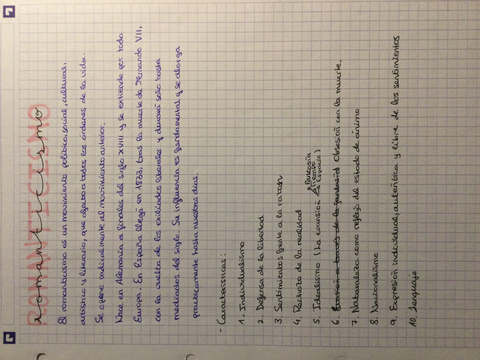 ROMANTICISMO
romanticismo
El romanticismo es un movimiento político, social, cultural,
artístico y literario, que afecta a todos los órdenes de la vida.
Se opone radicalmente al movimiento anterior.
Nace en Alemania a finales del siglo XVIII y se extiende por toda
Europa. En España llegó en 1833, tras la muerte de Fernando VII,
con la vuelta de los exiliados liberales y durará solo hasta
mediados del siglo. Su influencia es fundamental y se alarga
prácticamente hasta nuestros días.
- Características:
1. Individualismo
2. Defensa de la libertad
3. Sentimientos frente a la razón
4. Rechazo de la realidad
5. Idealismo (la evasión
6. Obsesión con la muerte.
7. Naturaleza como reflejo del estado de ánimo
8. Nacionalismo
9. Expresión individual, auténtica y libre de los sentimientos
10. Lenguaje